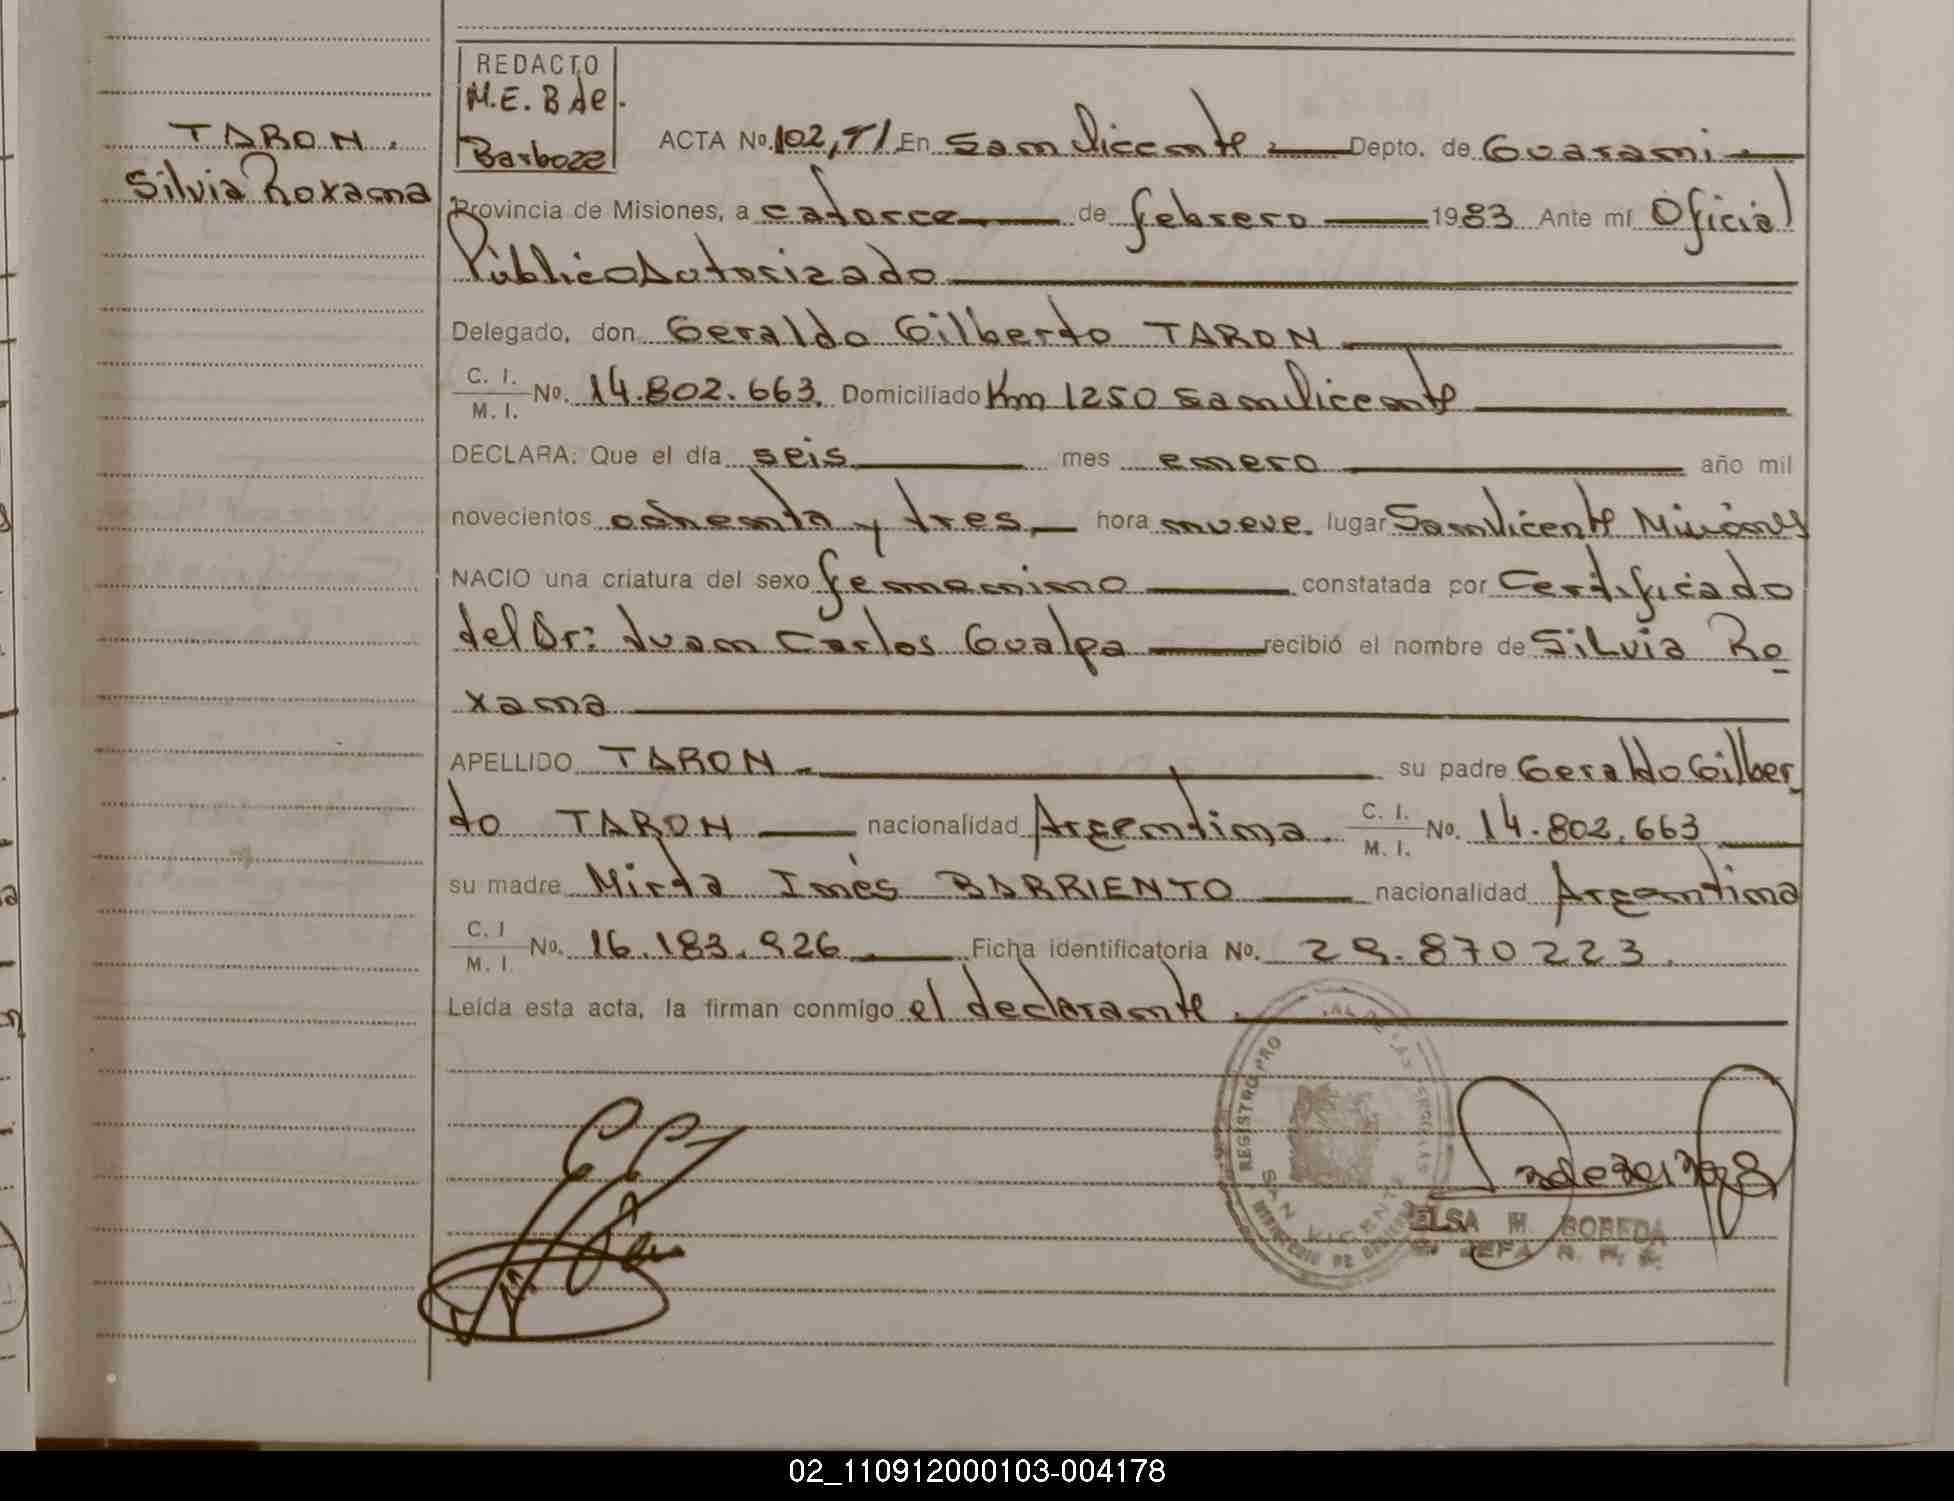 REDACTO
M.E.B de.
Barboza
TARON.
Silvia Roxana
ACTA No. 102, T1 En San Vicente Depto. de Guarani
Provincia de Misiones, a catorce de febrero 1983 Ante mí Oficial
Público Autorizado
Delegado, don Geraldo Gilberto TARON
C. I.
M. I. No. 14.802.663. Domiciliado Km 1250 San Vicente
DECLARA: Que el día seis mes enero año mil
novecientos ochenta y tres hora nueve. lugar San Vicente Misiones
NACIO una criatura del sexo femenino constatada por Certificado
del Dr: Juan Carlos Gualpa recibió el nombre de Silvia Ro
xana
APELLIDO TARON su padre Geraldo Gilber
to TARON nacionalidad Argentina. C. I.
M. I. No. 14.802.663
su madre Mirta Inés BARRIENTO nacionalidad Argentina
C. I
M. I. No. 16.183.926 Ficha identificatoria No. 29.870223.
Leída esta acta, la firman conmigo el declarante.
REGISTRO PRO AL DE LAS PERSONAS
SAN VICENTE
ELSA M. BOBEDA
JEFA R. P.
02_110912000103-004178